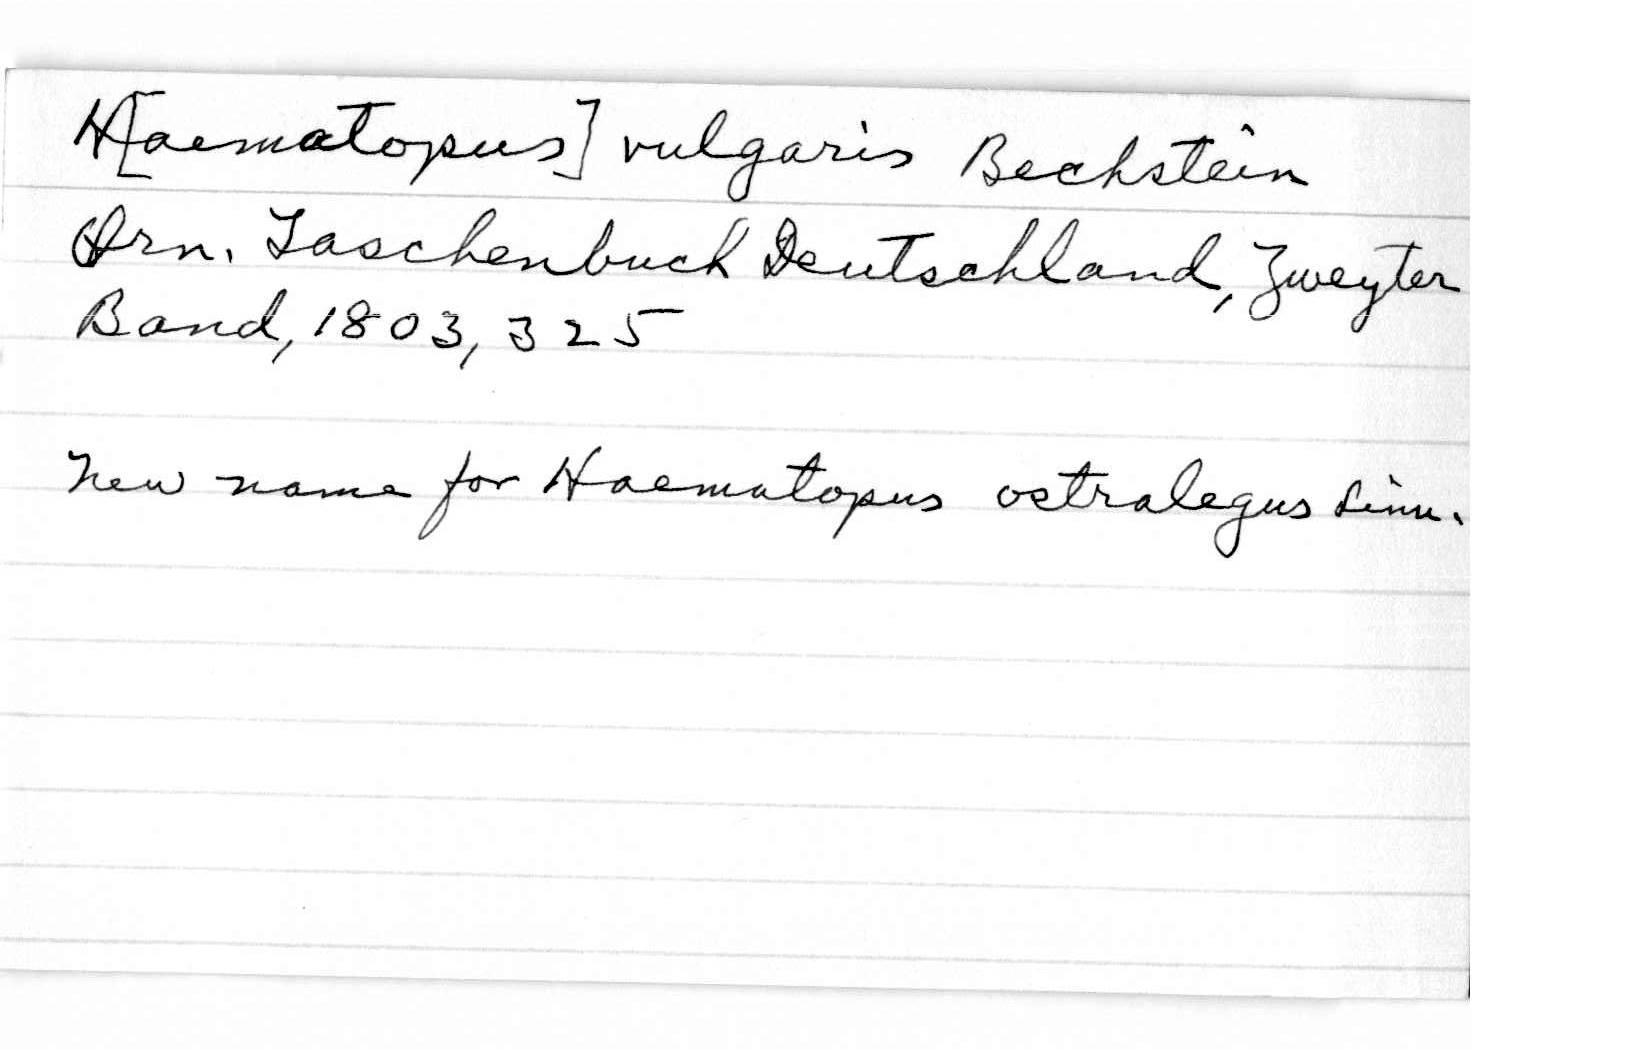 H[aematopus] vulgaris Bechstein
Orn. Taschenbuch Deutschland, Zweyter
Band, 1803, 325
New name for Haematopus ostralegus Linn.